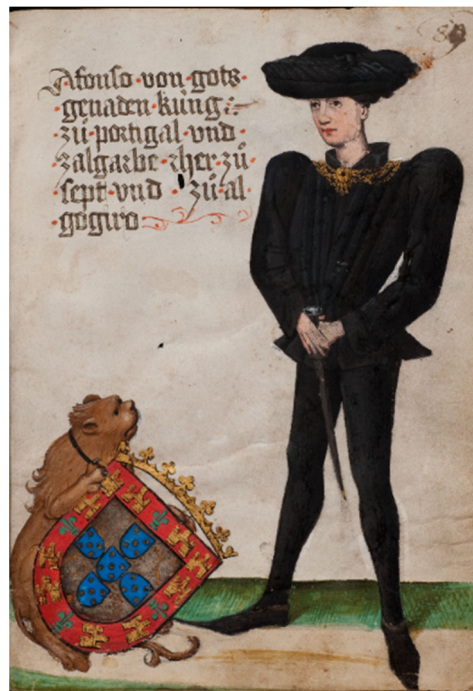 Afonso · von · gots ·
genaden · kúng :~
· zú · portigal · vnd ·
· zalgarbe · zher · zú ·
sept · vnd · zú · al ·
· gogiro